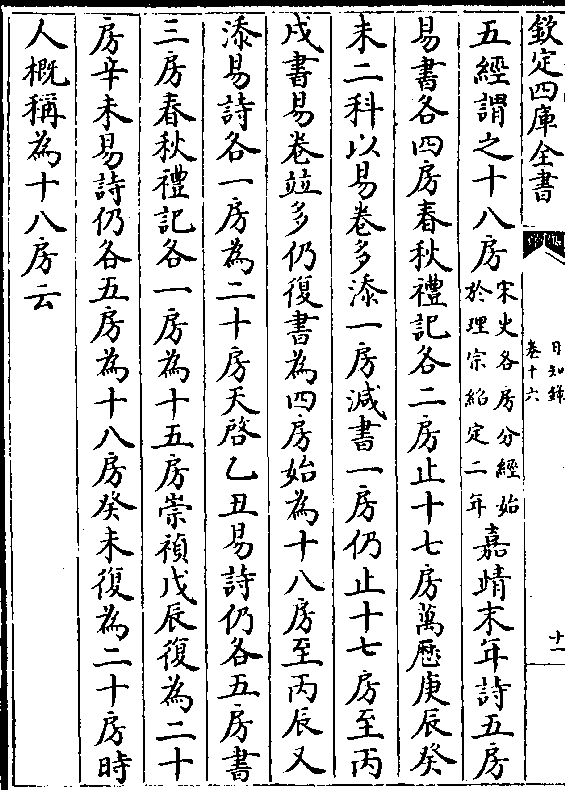 欽定四庫全書
日知錄
卷十六
十一
五經謂之十八房宋史各房分經始於理宗紹定二年嘉靖末年詩五房
易書各四房春秋禮記各二房止十七房萬厯庚辰癸
未二科以易卷多添一房減書一房仍止十七房至丙
戌書易卷竝多仍復書為四房始為十八房至丙辰又
添易詩各一房為二十房天啓乙丑易詩仍各五房書
三房春秋禮記各一房為十五房崇禎戊辰復為二十
房辛未易詩仍各五房為十八房癸未復為二十房時
人概稱為十八房云